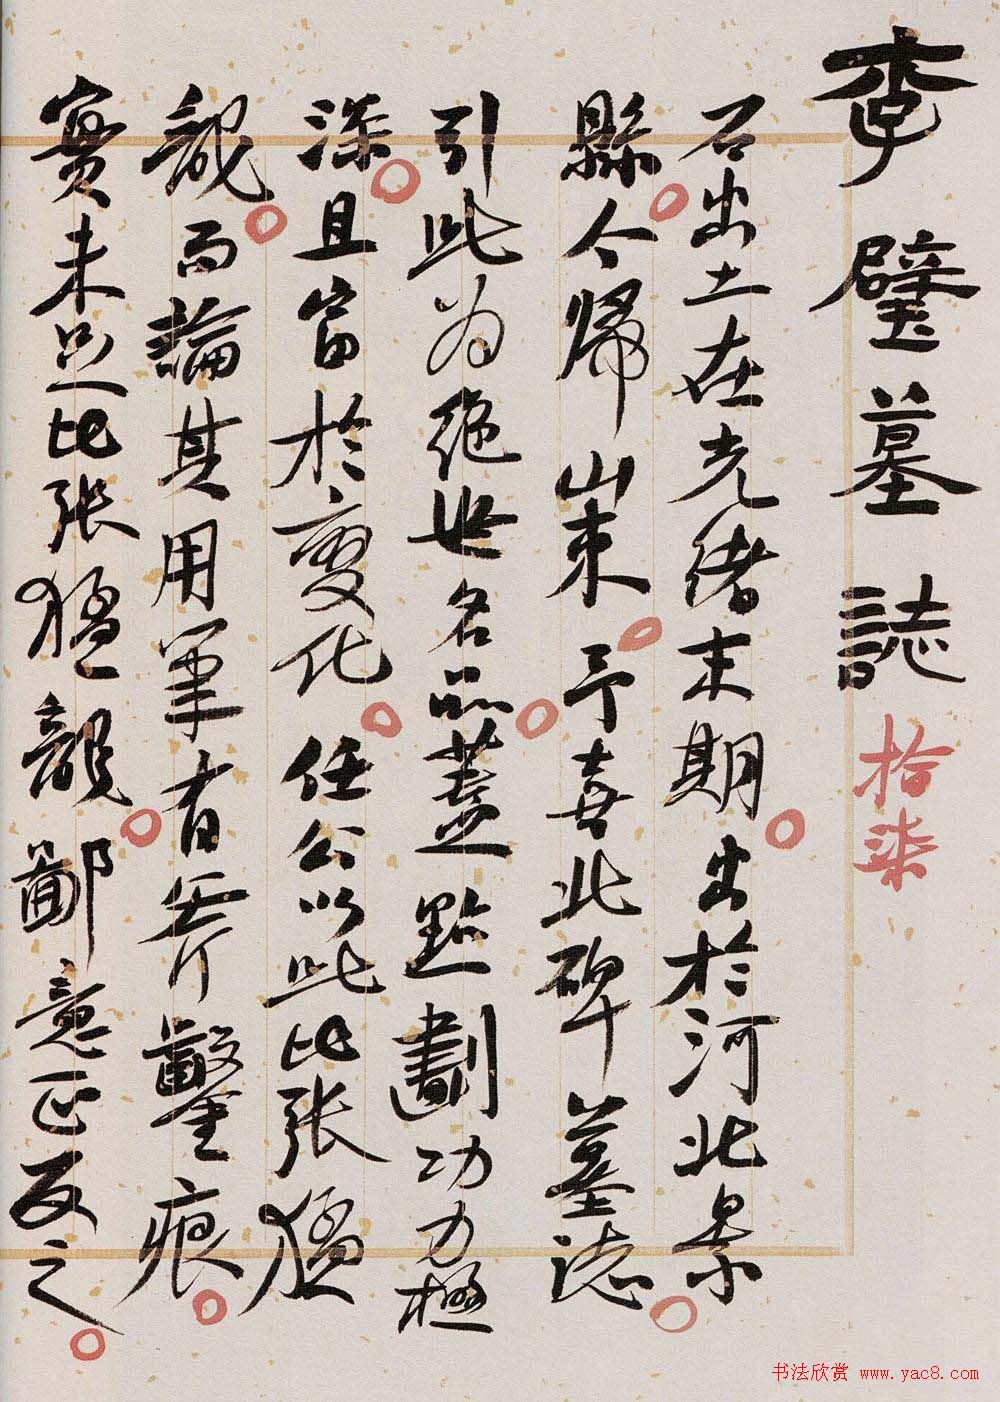 李璧墓誌
拾柒
石出土在光緒末期出於河北景
縣今歸山東予喜此碑墓誌
引此为絕世名品蓋點劃功力極
深且富於變化任公以此比張猛
龍而論其用筆有斧鑿痕
實未足比張猛龍鄙意正反之
书法欣赏 www.yac8.com